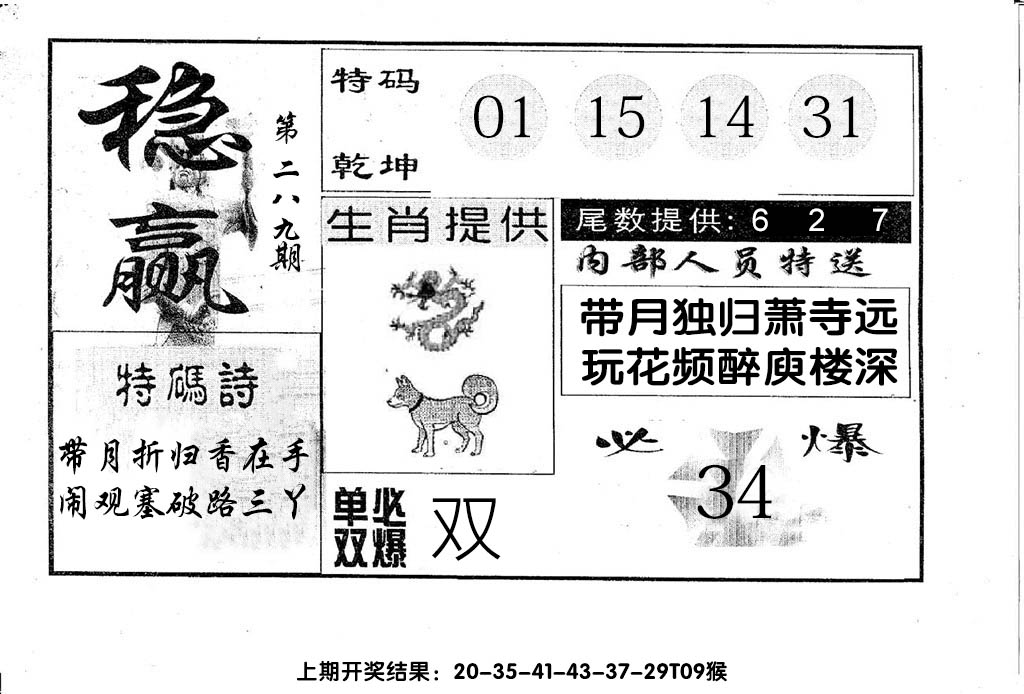 稳赢
第二八九期
特码
乾坤
01 15 14 31
生肖提供
尾数提供: 6 2 7
内部人员特送
带月独归萧寺远
玩花频醉庾楼深
特碼詩
带月折归香在手
闹观塞破路三丫
必爆
34
单双
必爆
双
上期开奖结果：20-35-41-43-37-29T09猴